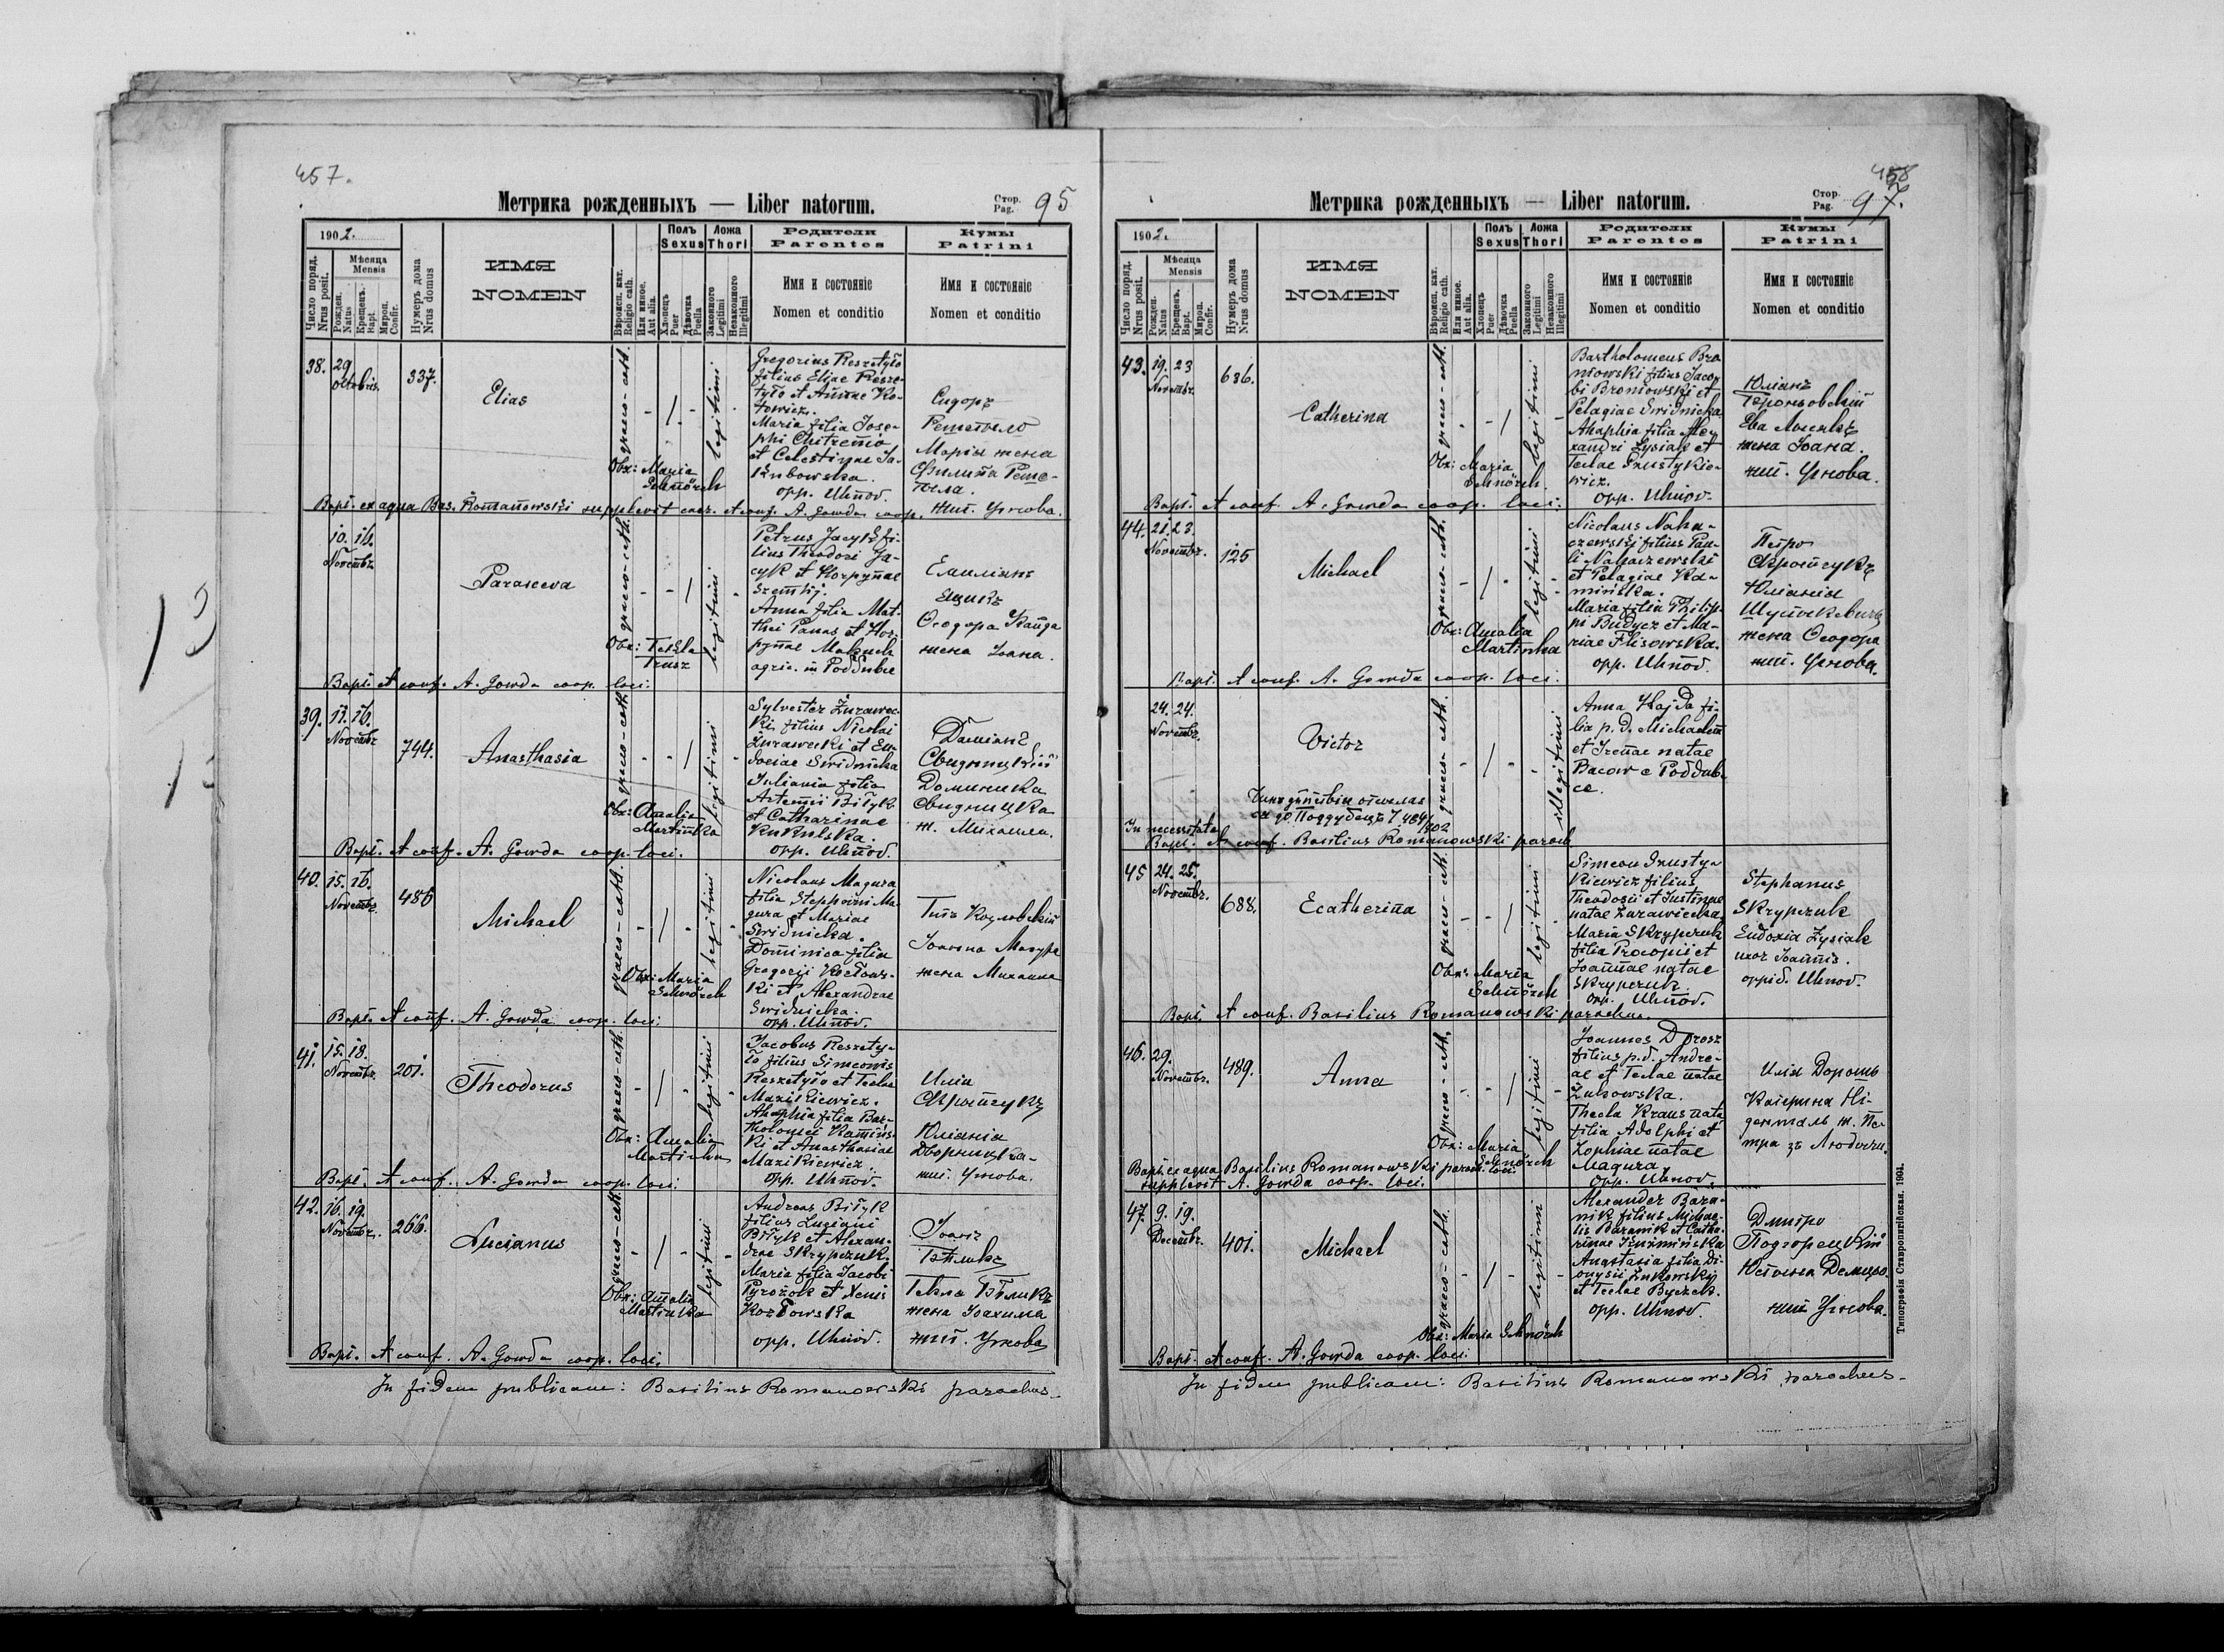 457.
Метрика рожденныхъ — Liber natorum.
Стор. Pag. 95
1902.
Число поряд. Nrus posit.
Мѣсяца Mensis
Рожден. Natus
Крещенъ. Bapt.
Миров. Confir.
Нумеръ дома Nrus domus
ИМЯ
NOMEN
Вѣроисп. кат. Religio cath.
Или инное. Aut alia.
Полъ Sexus
Хлопецъ Puer
Дѣвочка Puella
Ложа Thori
Законного Legitimi
Незаконного Illegitimi
Родители
Parentes
Имя и состояніе
Nomen et conditio
Кумы
Patrini
Имя и состояніе
Nomen et conditio
38. 29 Octobris 337.
Elias
graeco-cath.
legitimi
Obx: Maria
Schnörch
Gregorius Reszetyło
filius Eliae Resze-
tyło et Annae Ko-
towicz.
Maria filia Jose-
phi
et Celestinae Ja-
kubowska.
opp. Uhnov.
Сидоръ
Решетыло
Марія жена
Филипа Реше-
тыла.
жит. Угнова.
Bapt. ex aqua Bas. Romanowski supplevit caer. et conf. A. Gowda coop.
10. 16.
Novembr.
Parasceva
graeco-cath.
legitimi
Obx: Tekla
Trusz
Petrus Jacyk fi-
lius Theodori Ja-
cyk et Horpynae
Anna filia Mat-
thei Panas et Hor-
pynae
agric. in Poddubce
Емиліянъ
Яцикъ
Ѳеодора
жена Іоана.
Bapt. et conf. A. Gowda coop. loci.
39. 11. 16.
Novembr. 744.
Anasthasia
graeco-cath.
legitimi
Obx: Amalia
Martinka
Sylvester Żurawec-
ki filius Nicolai
Żurawecki et Eu-
dociae Swidnicka
Juliania filia
Artemii Biłyk
et Catharinae
Kukulska.
opp. Uhnov.
Даміянъ
Свидницкій
Доминика
Свидницка
ж. Михаила.
Bapt. et conf. A. Gowda coop. loci.
40. 15. 16.
Novembr. 486
Michael
graeco-cath.
legitimi
Obx: Maria
Schnörch
Nicolaus Magura
filia Stephani Ma-
gura et Mariae
Swidnicka.
Dominica filia
Gregorii Kozłows-
ki et Alexandrae
Swidnicka.
opp. Uhnov.
Козловскій
Іоанна Магура
жена Михаила
Bapt. et conf. A. Gowda coop. loci.
41. 15. 18.
Novembr. 201.
Theodorus
graeco-cath.
legitimi
Obx: Amalia
Martinka
Jacobus Reszety-
ło filius Simeonis
Reszetyło et Teclae
Mazikiewicz.
Ahaphia filia Bar-
tholomei Kamińs-
ki et Anasthasiae
Mazikiewicz.
opp. Uhnov.
Илія
Юліянія
Дворницка
жит. Угнова.
Bapt. et conf. A. Gowda coop. loci.
42. 16. 19.
Novembr. 266.
Lucianus
graeco-cath.
legitimi
Obx: Amalia
Martinka
Andreas Biłyk
filius Luciani
Biłyk et Alexan-
drae Skrypczuk.
Maria filia Jacobi
Pyrożok et Xeniae
Kozłowska
opp. Uhnov.
Іоанъ
Бѣлыкъ
Текла Бѣликъ
жена Іоакима
жит. Угнова
Bapt. et conf. A. Gowda coop. loci.
In fidem publicam: Basilius Romanowski parochus.
458
Метрика рожденныхъ — Liber natorum.
Стор. Pag. 97.
1902.
Число поряд. Nrus posit.
Мѣсяца Mensis
Рожден. Natus
Крещенъ. Bapt.
Миров. Confir.
Нумеръ дома Nrus domus
ИМЯ
NOMEN
Вѣроисп. кат. Religio cath.
Или инное. Aut alia.
Полъ Sexus
Хлопецъ Puer
Дѣвочка Puella
Ложа Thori
Законного Legitimi
Незаконного Illegitimi
Родители
Parentes
Имя и состояніе
Nomen et conditio
Кумы
Patrini
Имя и состояніе
Nomen et conditio
43. 19. 23
Novembr. 686.
Catherina
graeco-cath.
legitimi
Obx: Maria
Schnörch.
Bartholomeus Bro-
niowski filius Jaco-
bi Broniowski et
Pelagiae Swidnicka
Ahaphia filia Ale-
xandri Łysiak et
Teclae Hrustykie-
wicz.
opp. Uhnov.
Юліянъ
Броньовскій
Ева
жена Іоана.
жит. Угнова.
Bapt. et conf. A. Gowda coop. loci.
44. 21. 23.
Novembr. 125
Michael
graeco-cath.
legitimi
Obx: Amalia
Martinka
Nicolaus Naha-
czewski filius Pau-
li Nahaczewski
et Pelagiae Ka-
mińska.
Maria filia Philip-
pi Budycz et Ma-
riae Flisowska.
opp. Uhnov.
Петро
Юліянія
жена Ѳеодора
жит. Угнова.
Bapt. et conf. A. Gowda coop. loci.
24. 24.
Novembr.
Victor
graeco-cath.
illegitimi
Anna Hajda fi-
lia p. d. Michaelis
et Irenae natae
Bacow e Poddub-
ce.
до Поддубець 484/902
In necessitate
Bapt. et conf. Basilius Romanowski paroch.
45 24. 25.
Novembr. 688.
Ecatherina
graeco-cath.
legitimi
Obx: Maria
Schnörch
Simeon Hrusty-
kiewicz filius
Theodosii et Justinae
natae Żurawiecka,
Maria Skrypczuk
filia Procopii et
Joannae natae
Skrypczuk.
opp. Uhnov.
Stephanus
Skrypczuk
Eudoxia Łysiak
uxor Joannis.
oppid. Uhnov.
Bapt. et conf. Basilius Romanowski parochus.
46. 29.
Novembr. 489.
Anna
graeco-cath.
legitimi
Obx: Maria
Schnörch
Joannes Dorosz
filius p. d. Andre-
ae et Teclae natae
Żukowska.
Thecla Kraus nata
filia Adolphi et
Zophiae natae
Magura.
opp. Uhnov.
Илія Дорошъ
Катерина Ні-
ж. Пе-
тра зъ
Bapt. ex aqua Basilius Romanowski paroch. loci.
supplevit A. Gowda coop. loci.
47. 9. 19.
Decembr. 401.
Michael
graeco-cath.
legitimi
Obx: Maria Schnörch
Alexander Bara-
nik filius Michae-
lis Baranik et Catha-
rinae
Anastasia filia Di-
onysii Żukowskij
et Teclae Byczek.
opp. Uhnov.
Дмитро
Подгорецкій
Юстина
жит Угнова.
Bapt. et conf. A. Gowda coop. loci.
In fidem publicam: Basilius Romanowski parochus.
Типографія Ставропигійская. 1901.